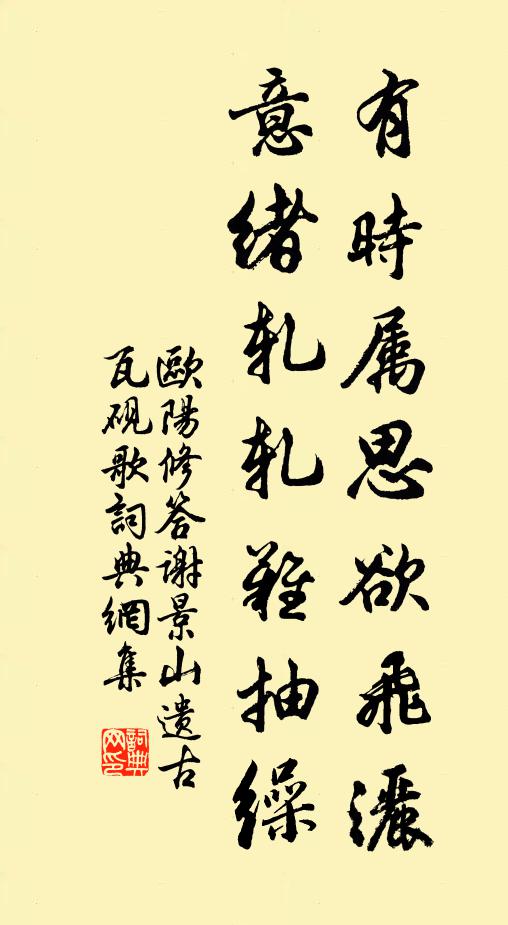 有時属思欲飛灑
意緒軋軋難抽繰
歐陽修答謝景山遺古
瓦硯歌詞典網集
詞典
网印